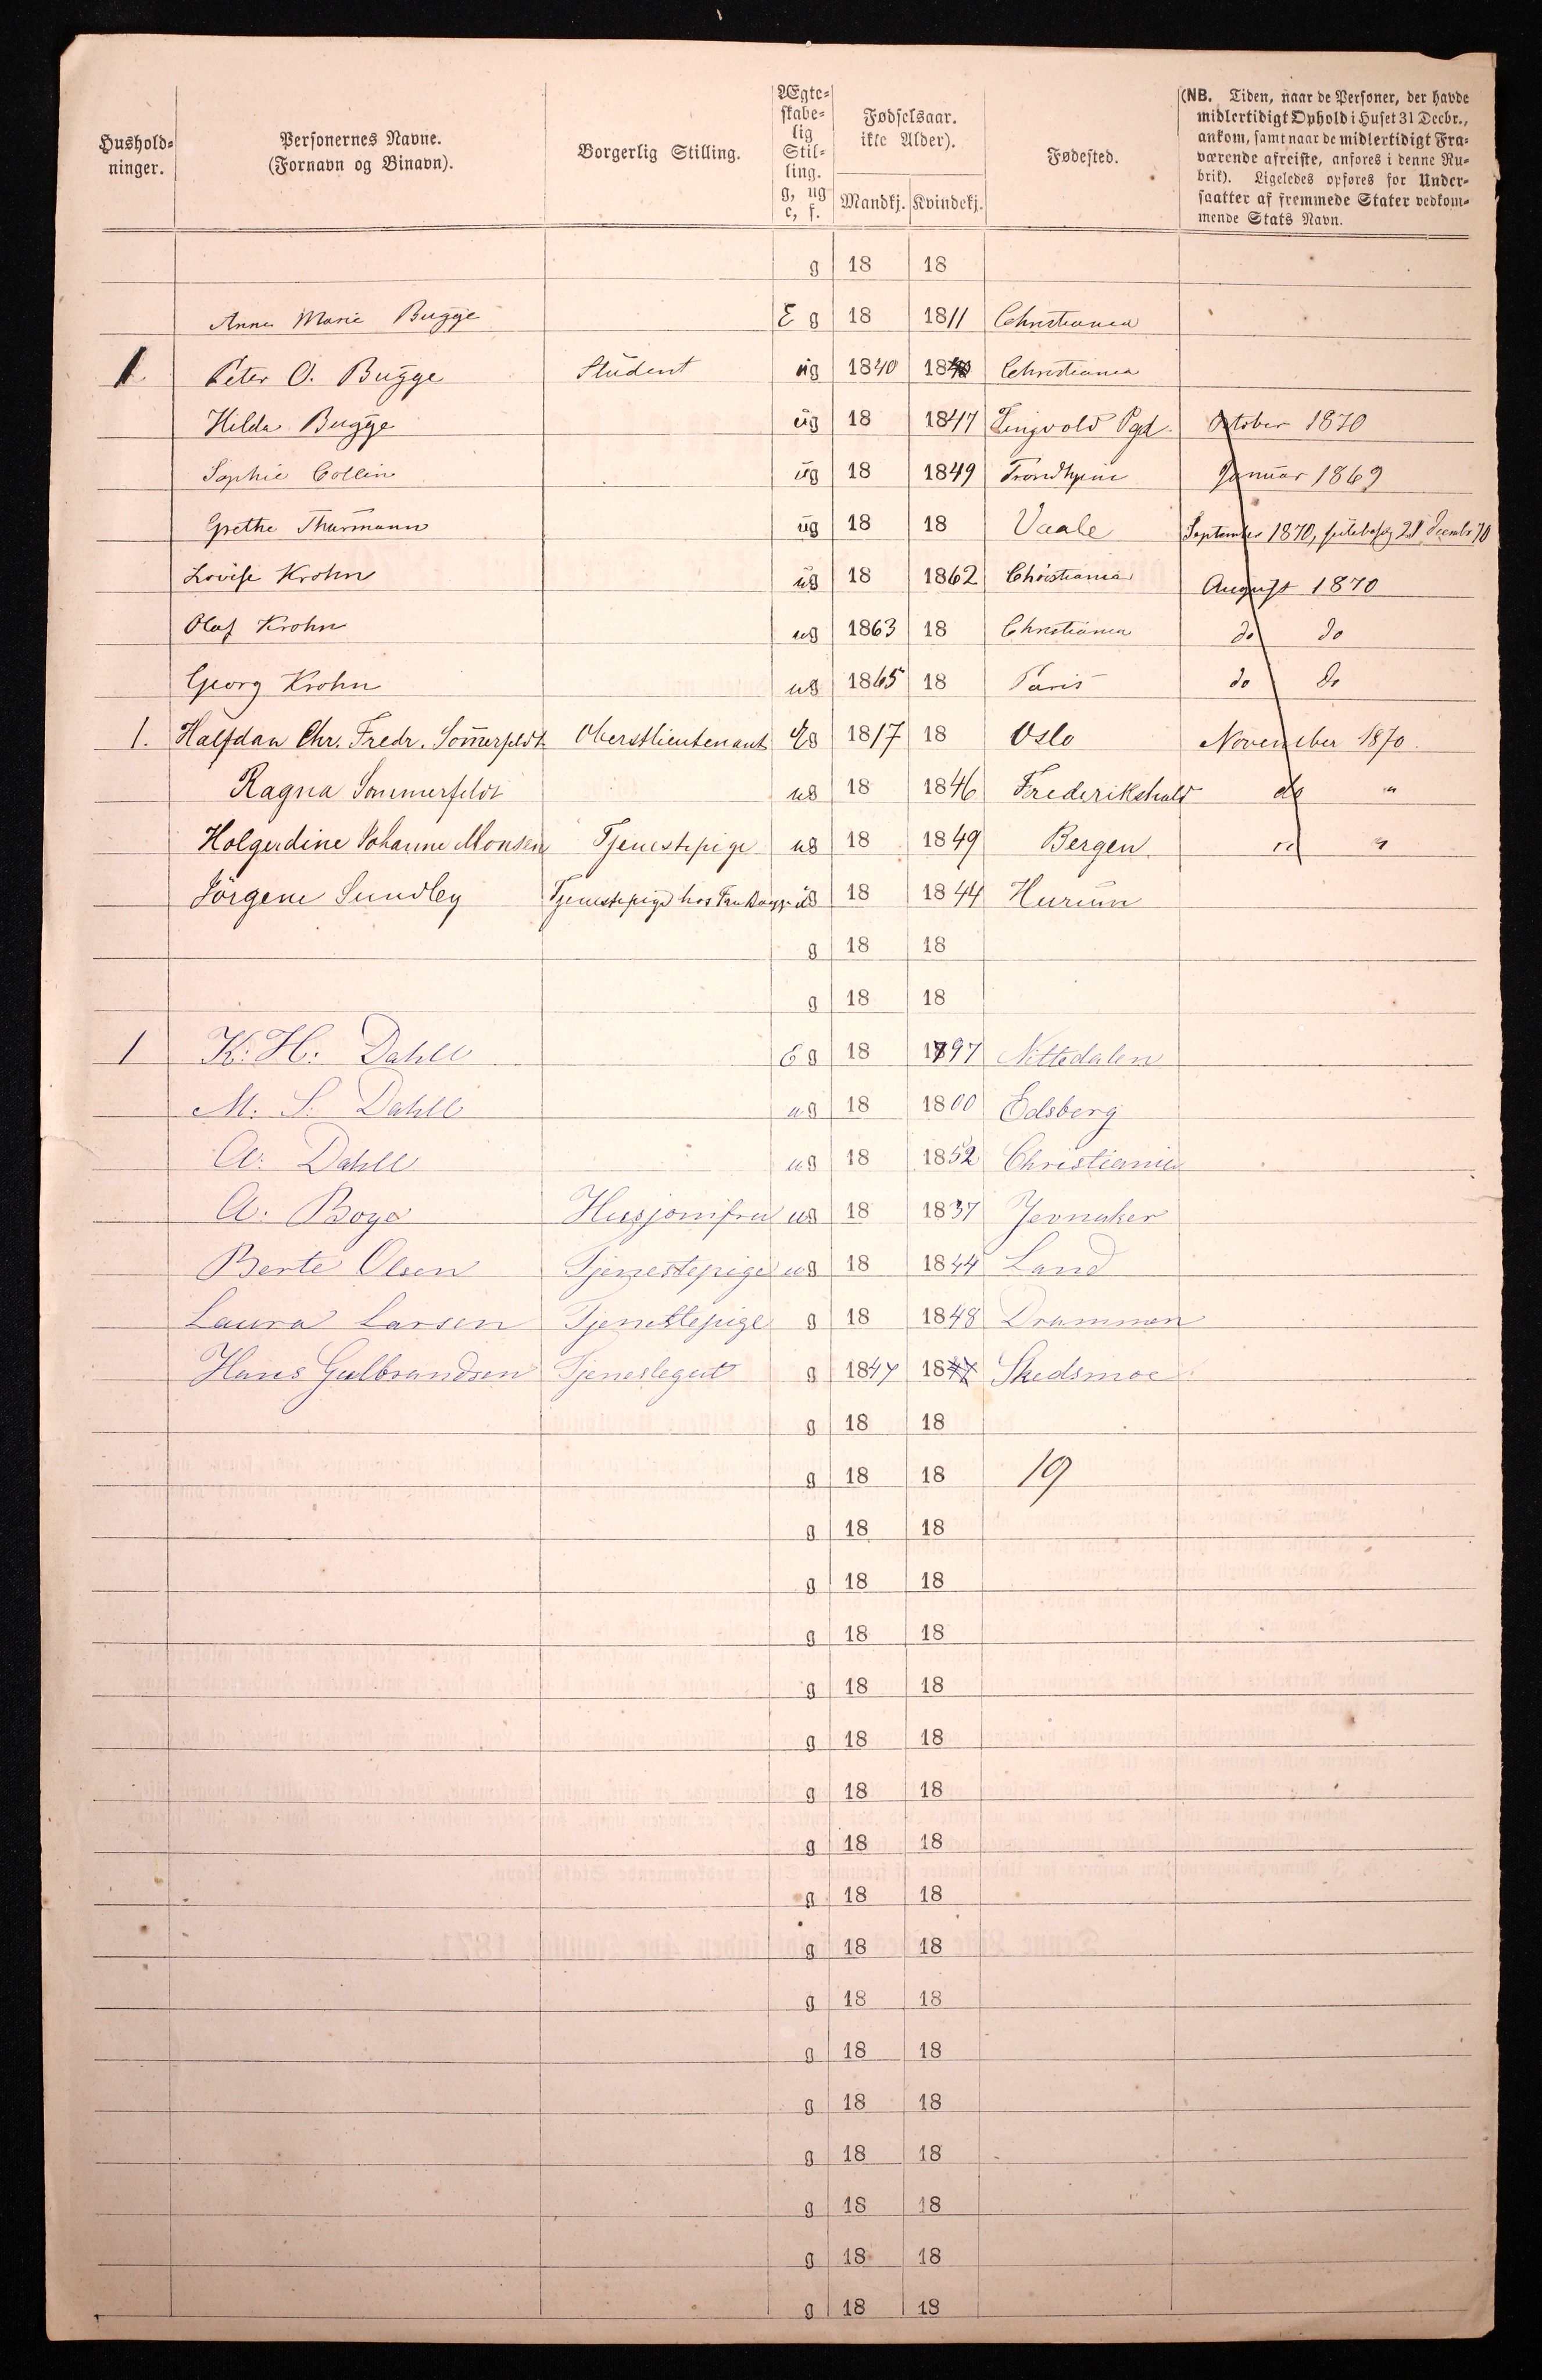 Hushold-
ninger.
Personernes Navne.
(Fornavn og Binavn).
Borgerlig Stilling.
Ægte-
skabe-
lig
Stil-
ling.
g, ug
e, f.
Fødselsaar.
ikke Alder).
Mandkj. Kvindekj.
Fødested.
(NB. Tiden, naar de Personer, der havde
midlertidigt Ophold i Huset 31 Decbr.,
ankom, samt naar de midlertidigt Fra-
værende afreiste, anføres i denne Ru-
brik). Ligeledes opføres for Under-
saatter af fremmede Stater vedkom-
mende Stats Navn.
g 18 18
Anne Marie Bugge E g 18 1811 Christiania
1 Peter O. Bugge Student ug 1840 18 Christiania
Hilda Bugge ug 18 1847 Tingvold Pgd. October 1870
Sophie Collin ug 18 1849 Trondhjem Januar 1869
Grethe Thurmann ug 18 18 Vaale September 1870, 21 Decembr 70
Lovise Krohn ug 18 1862 Christiania August 1870
Olaf Krohn ug 1863 18 Christiania do do
Georg Krohn ug 1865 18 Paris do do
1. Halfdan Chr. Fredr. Sommerfeldt Oberstlieutenant Eg 1817 18 Oslo November 1870.
Ragna Sommerfeldt ug 18 1846 Frederikshald do "
Holgerdine Johanne Monsen Tjenestepige ug 18 1849 Bergen " "
Jörgene Sundby Tjenestepige hos Fru Bugge ug 18 1844 Hurum
g 18 18
g 18 18
1 K. H. Dahll E g 18 1797 Nittedalen
M. S. Dahll ug 18 1800 Edsberg
A. Dahll ug 18 1852 Christiania
A. Boye Husjomfru ug 18 1837 Jevnaker
Berte Olsen Tjenestepige ug 18 1844 Land
Laura Larsen Tjenestepige g 18 1848 Drammen
Hans Gulbrandsen Tjenestegut g 1847 1847 Skedsmoe
g 18 18
g 18 18 19
g 18 18
g 18 18
g 18 18
g 18 18
g 18 18
g 18 18
g 18 18
g 18 18
g 18 18
g 18 18
g 18 18
g 18 18
g 18 18
g 18 18
g 18 18
g 18 18